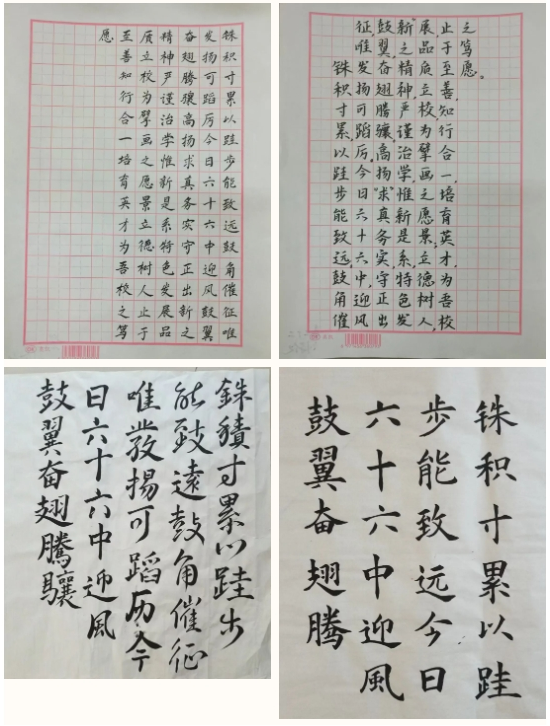 铢积寸累以跬步能致远鼓角催征唯
发扬可蹈厉今日六十六中迎风鼓翼
奋翅腾骧高扬求真务实守正出新之
精神严谨治学惟新是系特色发展品
质立校为擘画之愿景立德树人止于
至善知行合一培育英才为吾校之笃
愿
铢积寸累，以跬步能致远，鼓角催
征，唯发扬可蹈厉。今日六十六中，迎风
鼓翼，奋翅腾骧，高扬“求真务实守正出
新”之精神，严谨治学，惟新是系，特色发
展品质立校，为擘画之愿景，立德树人，
止于至善，知行合一，培育英才，为吾校
之笃愿。
銖積寸累以跬步
能致遠鼓角催征
唯發揚可蹈历今
日六十六中迎風
鼓翼奋翅騰驤
铢积寸累以跬
步能致远今日
六十六中迎風
鼓翼奋翅腾